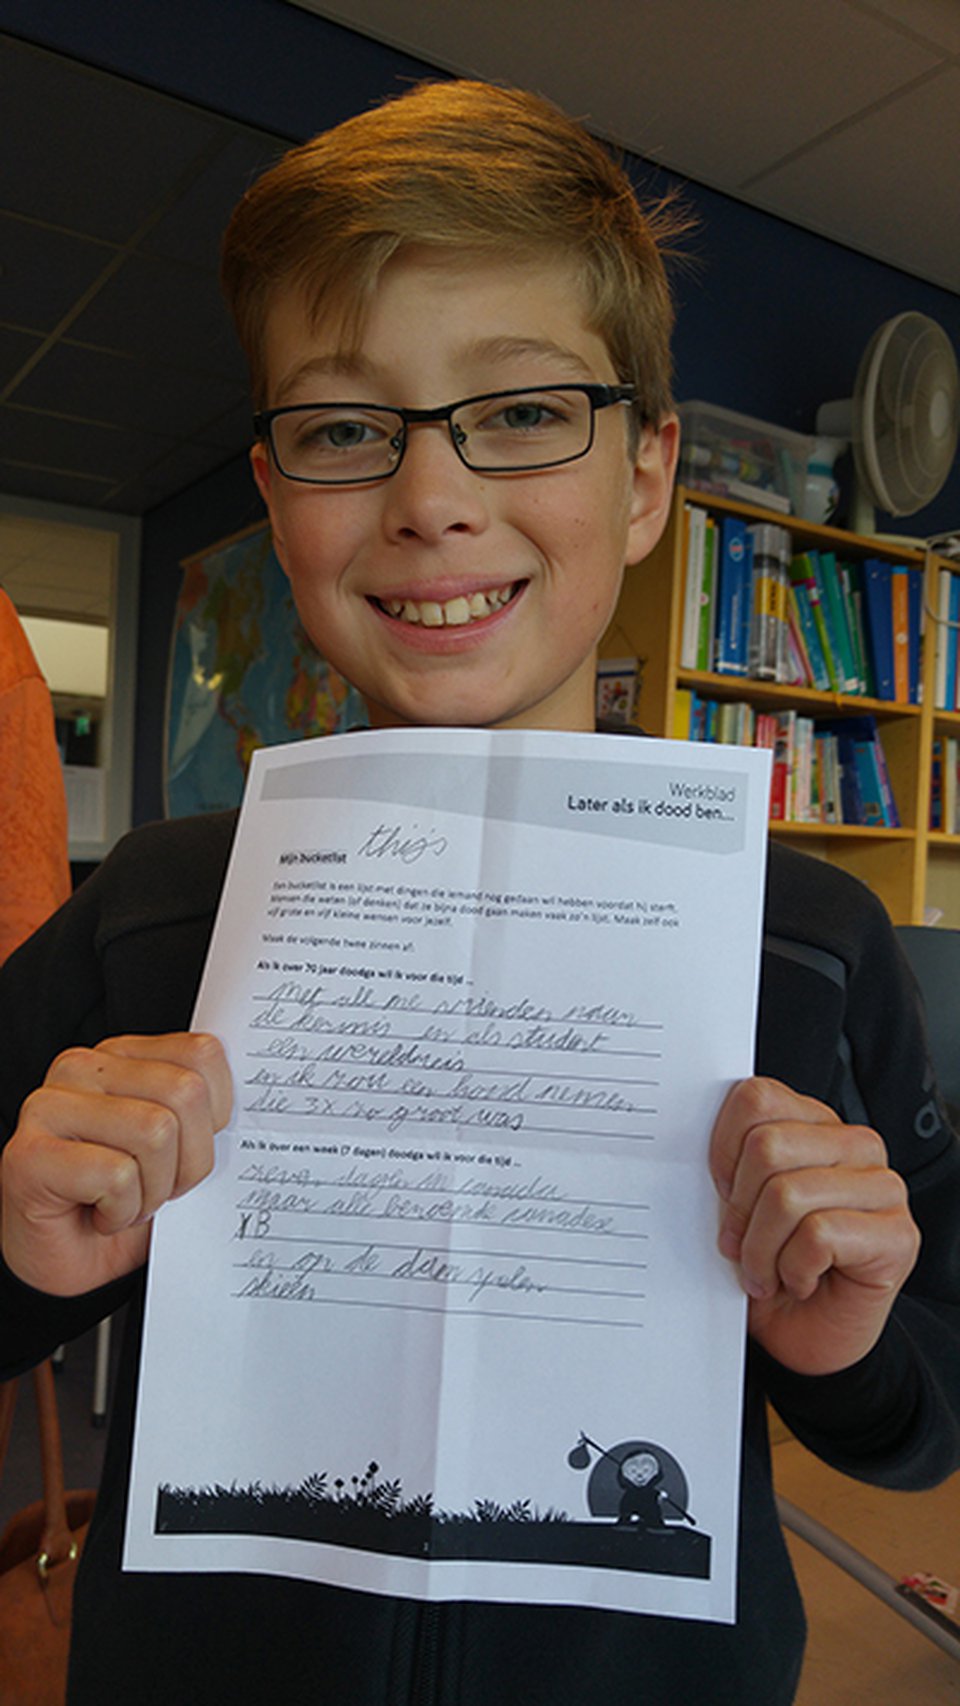 Werkblad
Later als ik dood ben...
Mijn bucketlist thijs
Een bucketlist is een lijst met dingen die iemand nog gedaan wil hebben voordat hij sterft.
Mensen die weten (of denken) dat ze bijna dood gaan maken vaak zo'n lijst. Maak zelf ook
vijf grote en vijf kleine wensen voor jezelf.
Maak de volgende twee zinnen af:
Als ik over 70 jaar doodga wil ik voor die tijd ...
met all me vrienden naar
de kermis en als student
een wereldreis
en ik zou een hond nemen
die 3x zo groot was
Als ik over een week (7 dagen) doodga wil ik voor die tijd ...
zeven dagen in canada
naar alle beroemde canadese
en op de
skieën
1